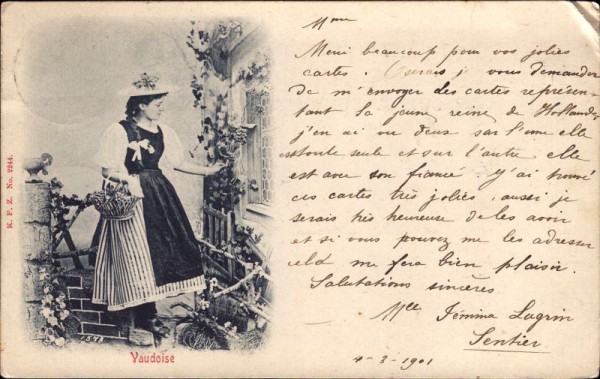 K. F. Z. No. 2244.
1598
Vaudoise
Mme
Merci beaucoup pour vos jolies
cartes. Oserais je vous demander
de m'envoyer des cartes représen-
tant la jeune reine de Hollande,
j'en ai vu deux sur l'une elle
est toute seule et sur l'autre elle
est avec son fiancé. J'ai trouvé
ces cartes très jolies, aussi je
serais très heureuse de les avoir
et si vous pouvez me les adresser
celà me fera bien plaisir.
Salutations sincères
Mlle Jémima Lugrin
Sentier
4-3-1901